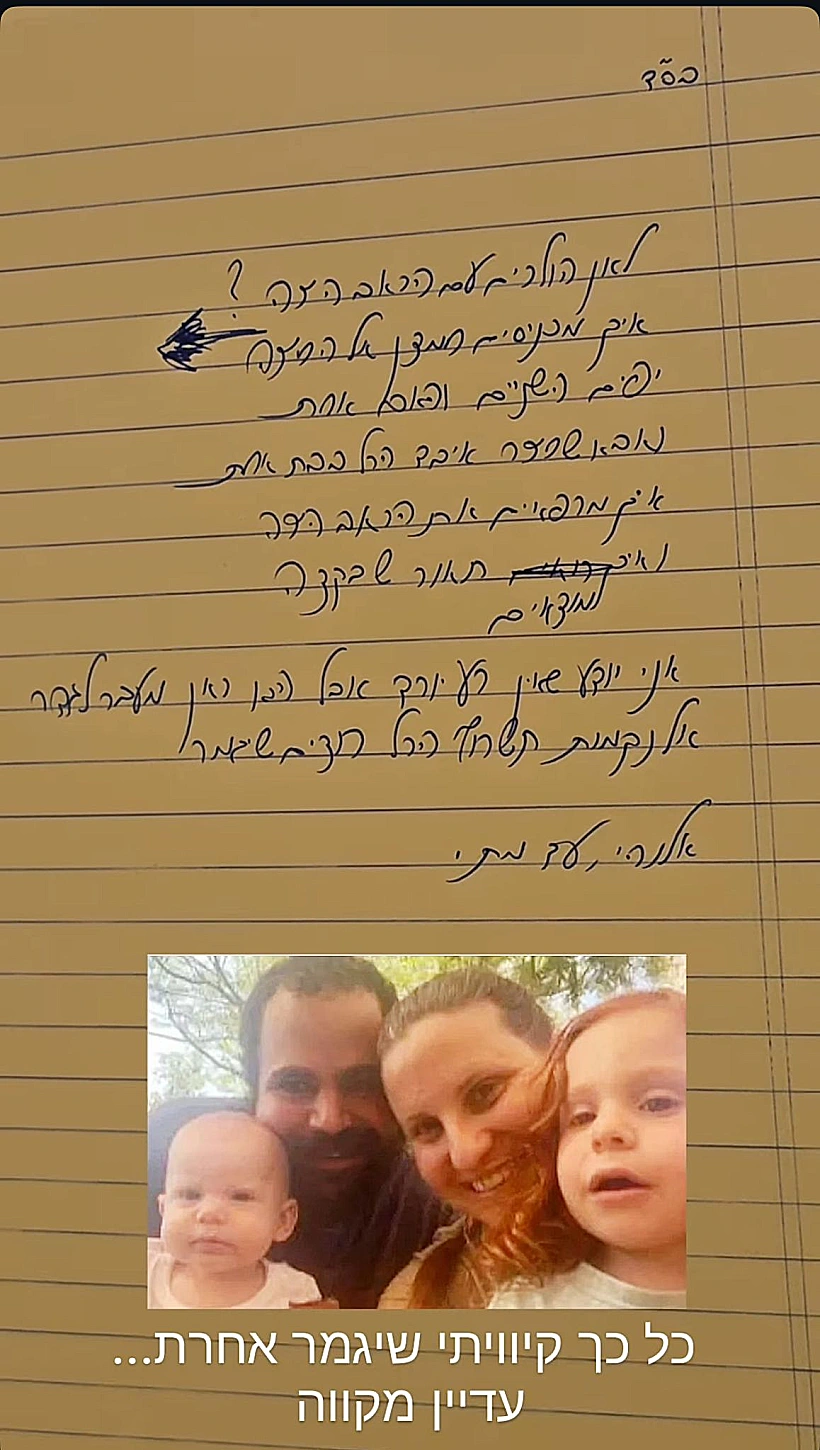 בס"ד
לאן הולכים עם הכאב הזה ?
איך מכניסים חמצן אל החזה
יפים השניים אחת
ואבא איבד הכל בבת אחת
איך מרפאיים את הכאב הזה
ואיך תאור שבקצה
מוצאים
אני יודע שאין רע יורד אבל הגן כאן מעבר לגדר
אל נקמות הכל רוצים שיגמר
אלוהיי, עד מתי
כל כך קיוויתי שיגמר אחרת...
עדיין מקווה